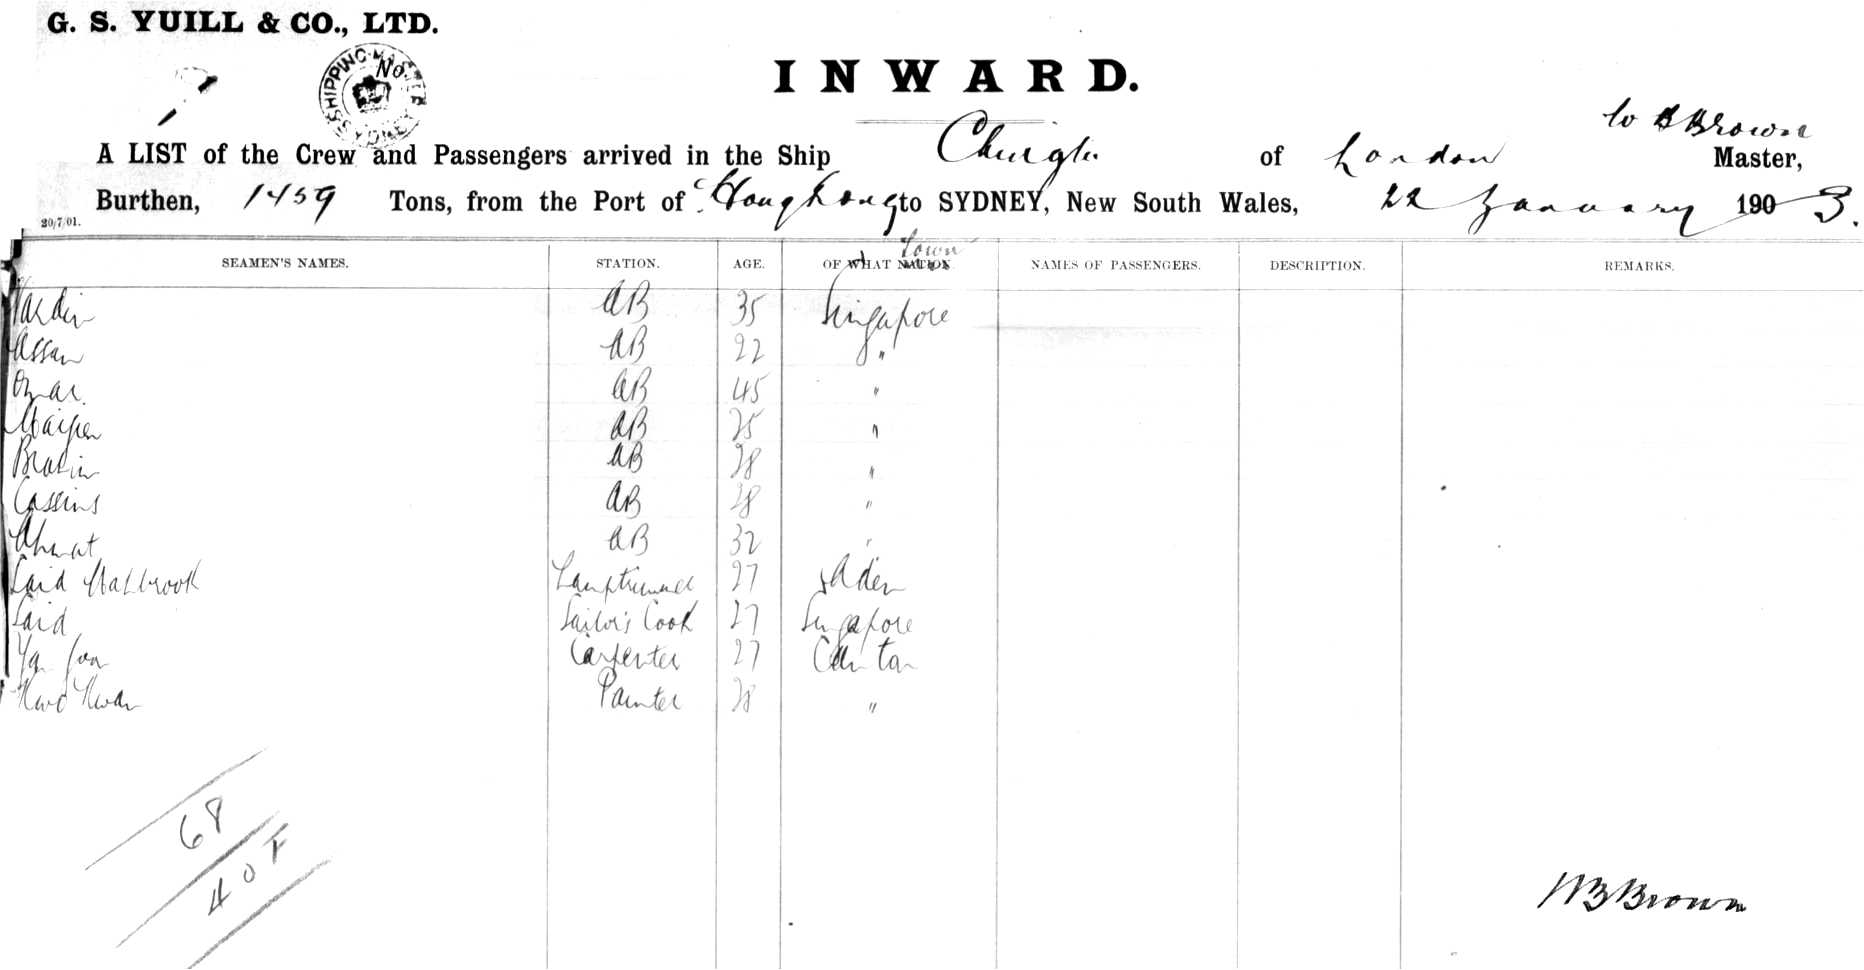 G. S. YUILL & CO., LTD.
SHIPPING MASTER
No.
INWARD.
W B Brown
A LIST of the Crew and Passengers arrived in the Ship Chingtu of London Master,
Burthen, 1459 Tons, from the Port of Hongkong to SYDNEY, New South Wales, 22 January 1903.
20/7/01.
Town
SEAMEN'S NAMES. STATION. AGE. OF WHAT NATION. NAMES OF PASSENGERS. DESCRIPTION. REMARKS.
AB 35 Singapore
Assan AB 22 "
Omar. AB 45 "
AB 25 "
Brahim AB 28 "
Cassims AB 28 "
Ahmat AB 32 "
Said Lamptrimmer 27 Aden
Said Sailor's Cook 27 Singapore
Carpenter 27 Canton
Painter 28 "
68
40 F
WB Brown